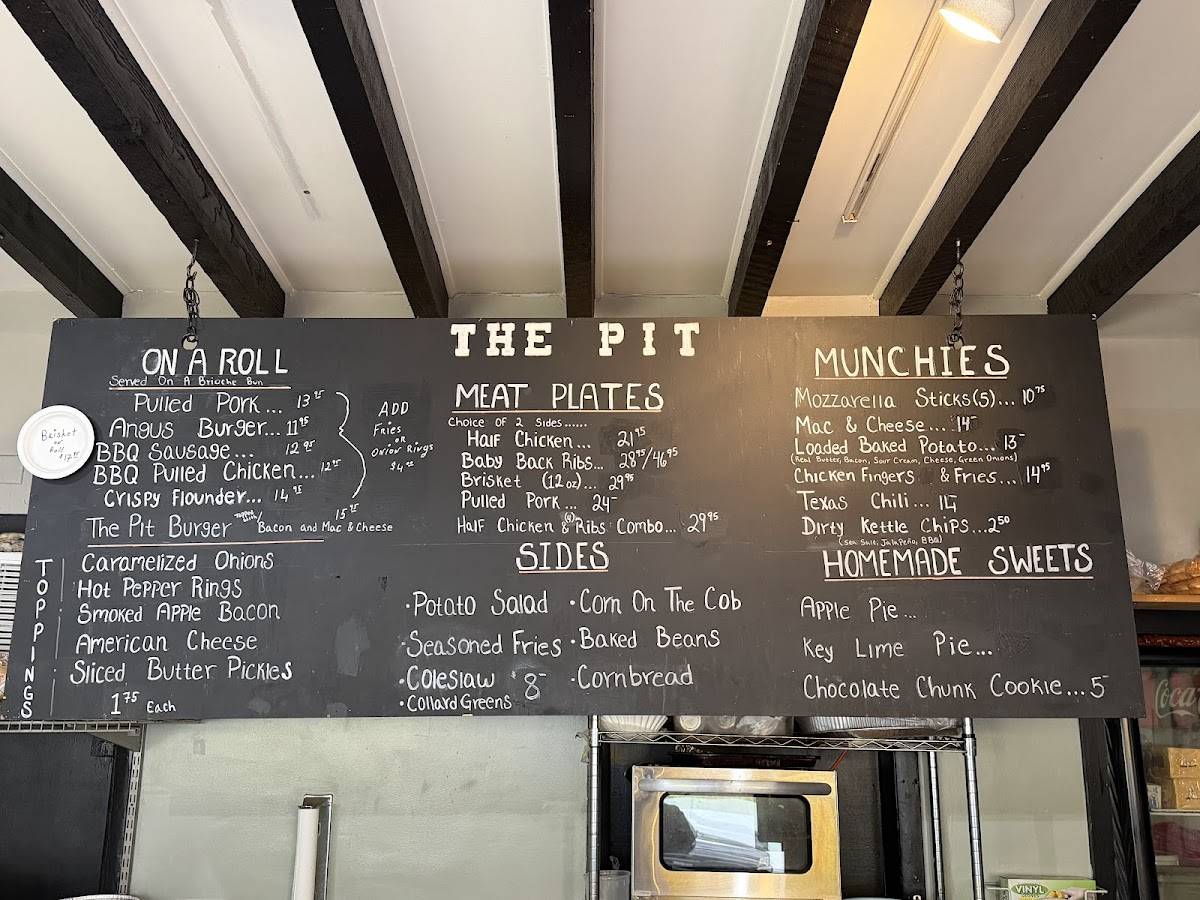 THE PIT
ON A ROLL
Served On A Brioche Bun
Pulled Pork...
Angus Burger... 11 95
BBQ Sausage... 12 95
BBQ Pulled Chicken... 12 95
Crispy Flounder... 14 95
The Pit Burger Topped With/ Bacon and Mac & Cheese
ADD
Fries
OR
Onion Rings
Brisket
on
Roll
TOPPINGS
Caramelized Onions
Hot Pepper Rings
Smoked Apple Bacon
American Cheese
Sliced Butter Pickles
1 75 Each
MEAT PLATES
Choice Of 2 Sides......
Half Chicken... 21 95
Baby Back Ribs... 28 95/46 95
Brisket (12 oz)... 29 95
Pulled Pork... 24-
Half Chicken & (4) Ribs Combo... 29 95
SIDES
·Potato Salad ·Corn On The Cob
·Seasoned Fries ·Baked Beans
·Coleslaw $8- ·Cornbread
·Collard Greens
MUNCHIES
Mozzarella Sticks(5)... 10 75
Mac & Cheese... 14-
Loaded Baked Potato... 13-
(Real Butter, Bacon, Sour Cream, Cheese, Green Onions)
Chicken Fingers & Fries... 14 95
Texas Chili... 14
Dirty Kettle Chips...2 50
(Sea Salt, Jalapeño, BBQ)
HOMEMADE SWEETS
Apple Pie...
Key Lime Pie...
Chocolate Chunk Cookie...5-
Coca
VINYL